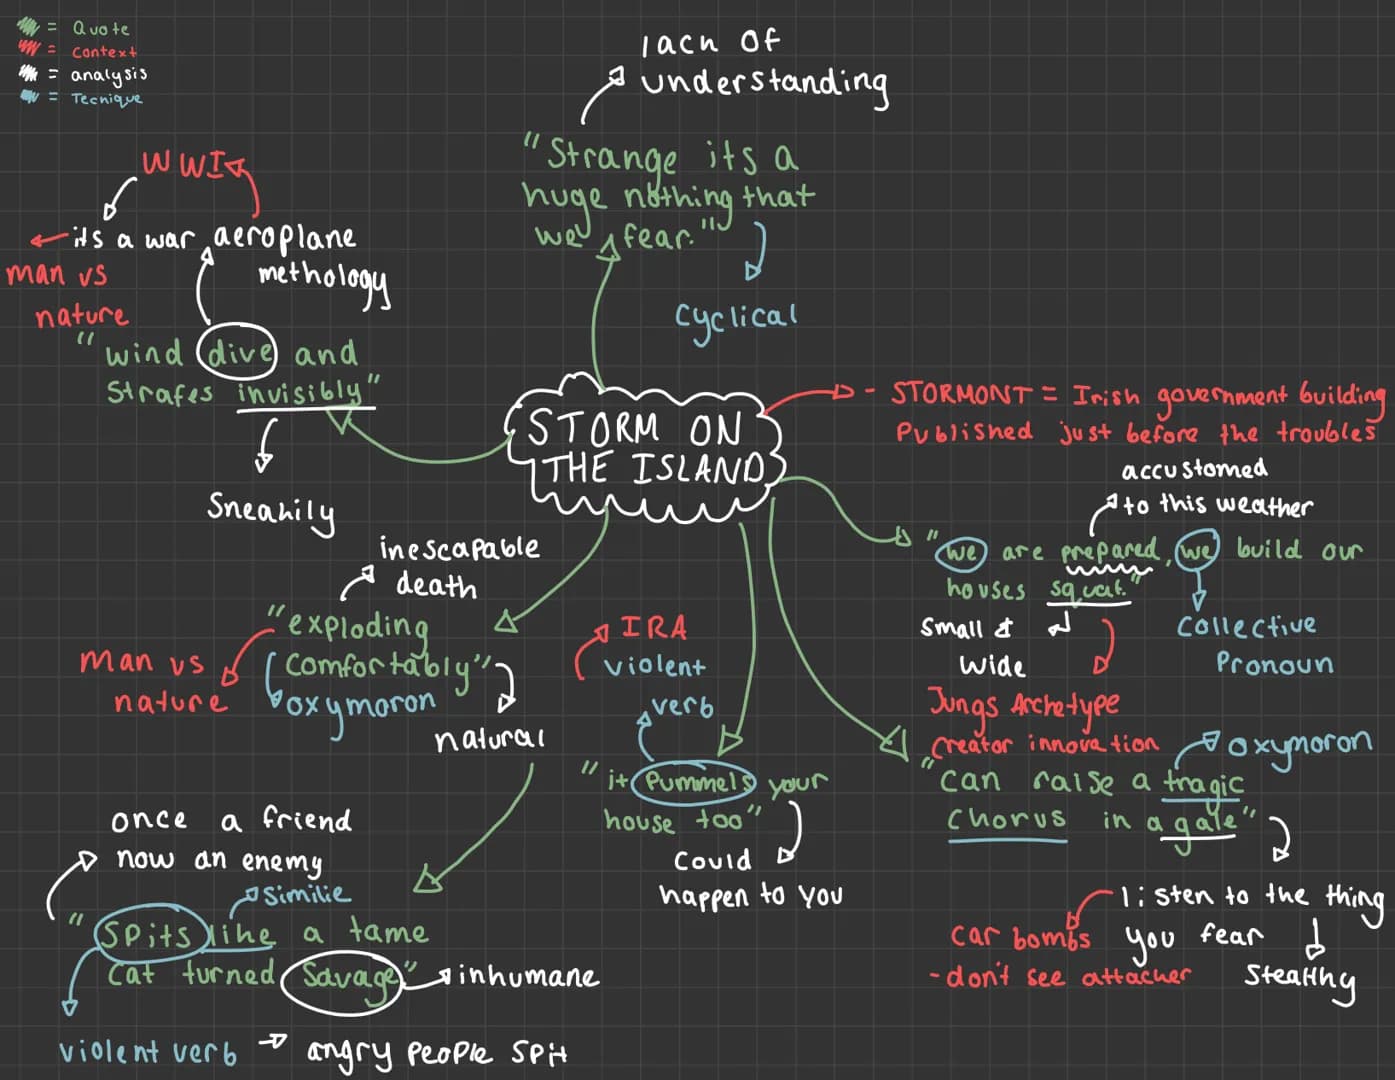 = Quote
= Context
= analysis
= Tecnique
lack of
understanding
"Strange its a
huge nothing that
we fear.""
Cyclical
WWI
its a war aeroplane
methology
man vs
nature
"wind dive and
Strafes invisibly"
Sneakily
STORM ON
THE ISLAND
- STORMONT = Irish government building
Published just before the troubles
accustomed
to this weather
"we are prepared, we build our
houses squat."
Small &
wide
Collective
Pronoun
Jungs Archetype
creator innovation
inescapable
death
"exploding
comfortably"
man vs
nature
oxymoron
natural
IRA
violent
verb
"it Pummels your
house too"
Could
happen to you
oxymoron
"can raise a tragic
chorus in a gale"
listen to the thing
you fear
Stealthy
car bombs
- don't see attacker
once a friend
now an enemy
Similie
"Spits like a tame
cat turned Savage"
inhumane
violent verb
angry people spit